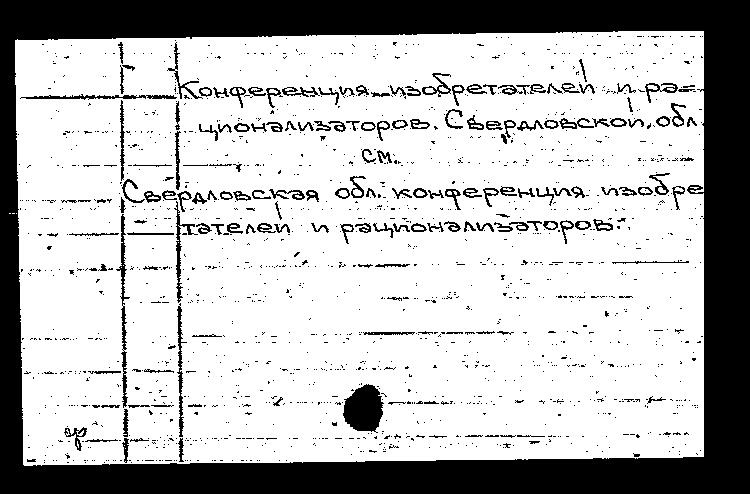 Конференция изобретателей и ра=
ционализаторов. Свердловской обл.
см.
Свердловская обл. конференция изобре
тателей и рационализаторов.